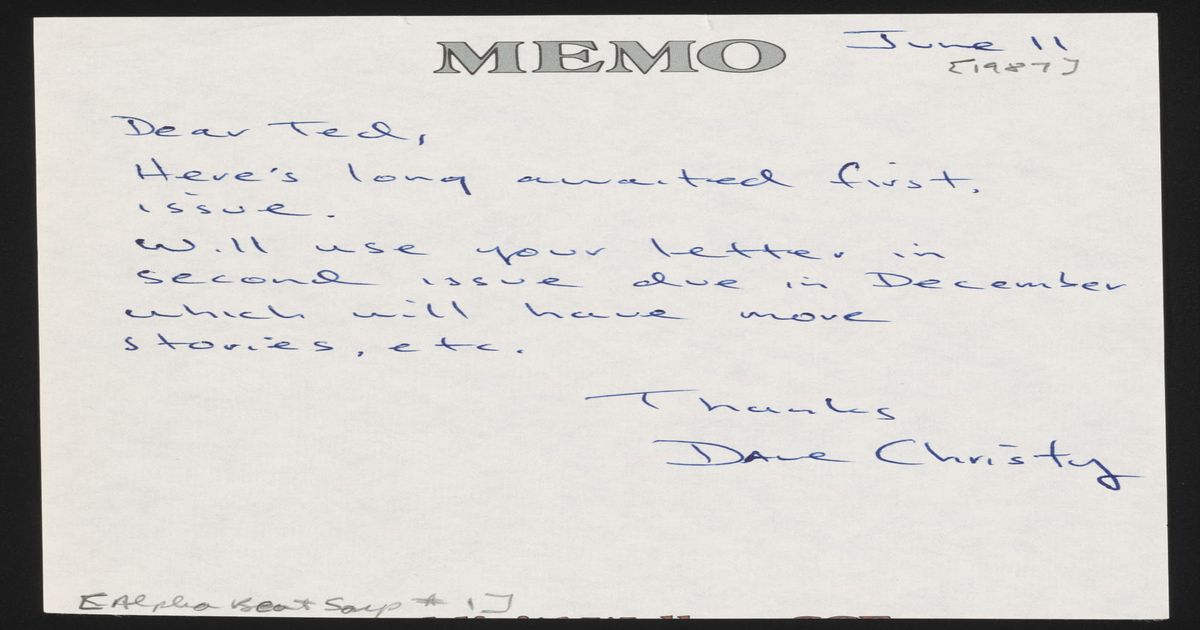 MEMO
June 11
[1987]
Dear Ted,
Here's long awaited first.
issue.
Will use your letter in
second issue due in December
which will have more
stories, etc.
Thanks
Dave Christy
[Alpha Beat Soup # 1]